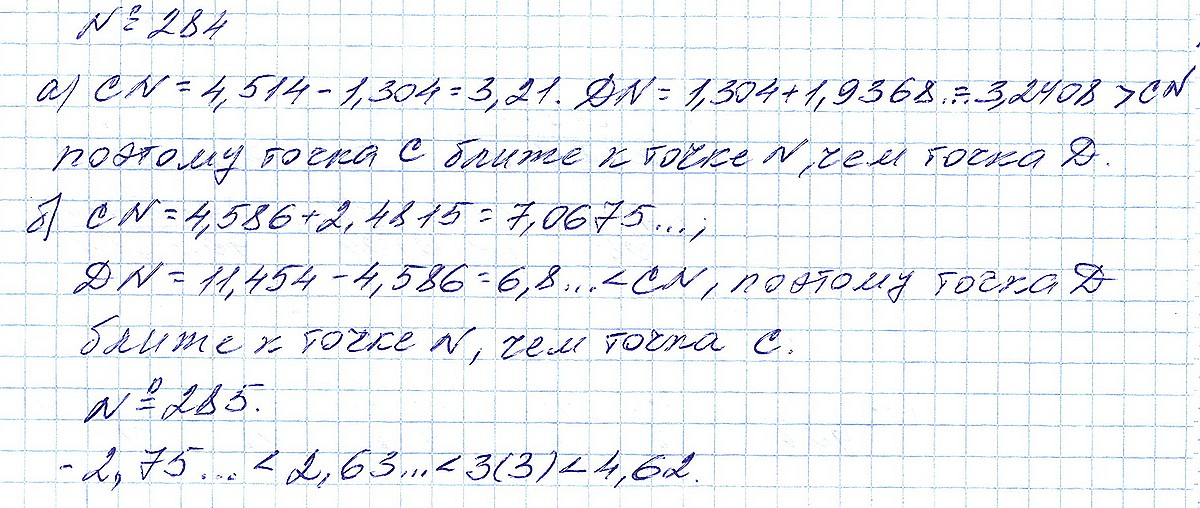 № 284
а) CN = 4,514 - 1,304 = 3,21. DN = 1,304 + 1,9368... = 3,2408 > CN
поэтому точка C ближе к точке N, чем точка D.
б) CN = 4,586 + 2,4815 = 7,0675...;
DN = 11,454 - 4,586 = 6,8... < CN, поэтому точка D
ближе к точке N, чем точка C.
№ 285.
-2,75... < 2,63... < 3(3) < 4,62.